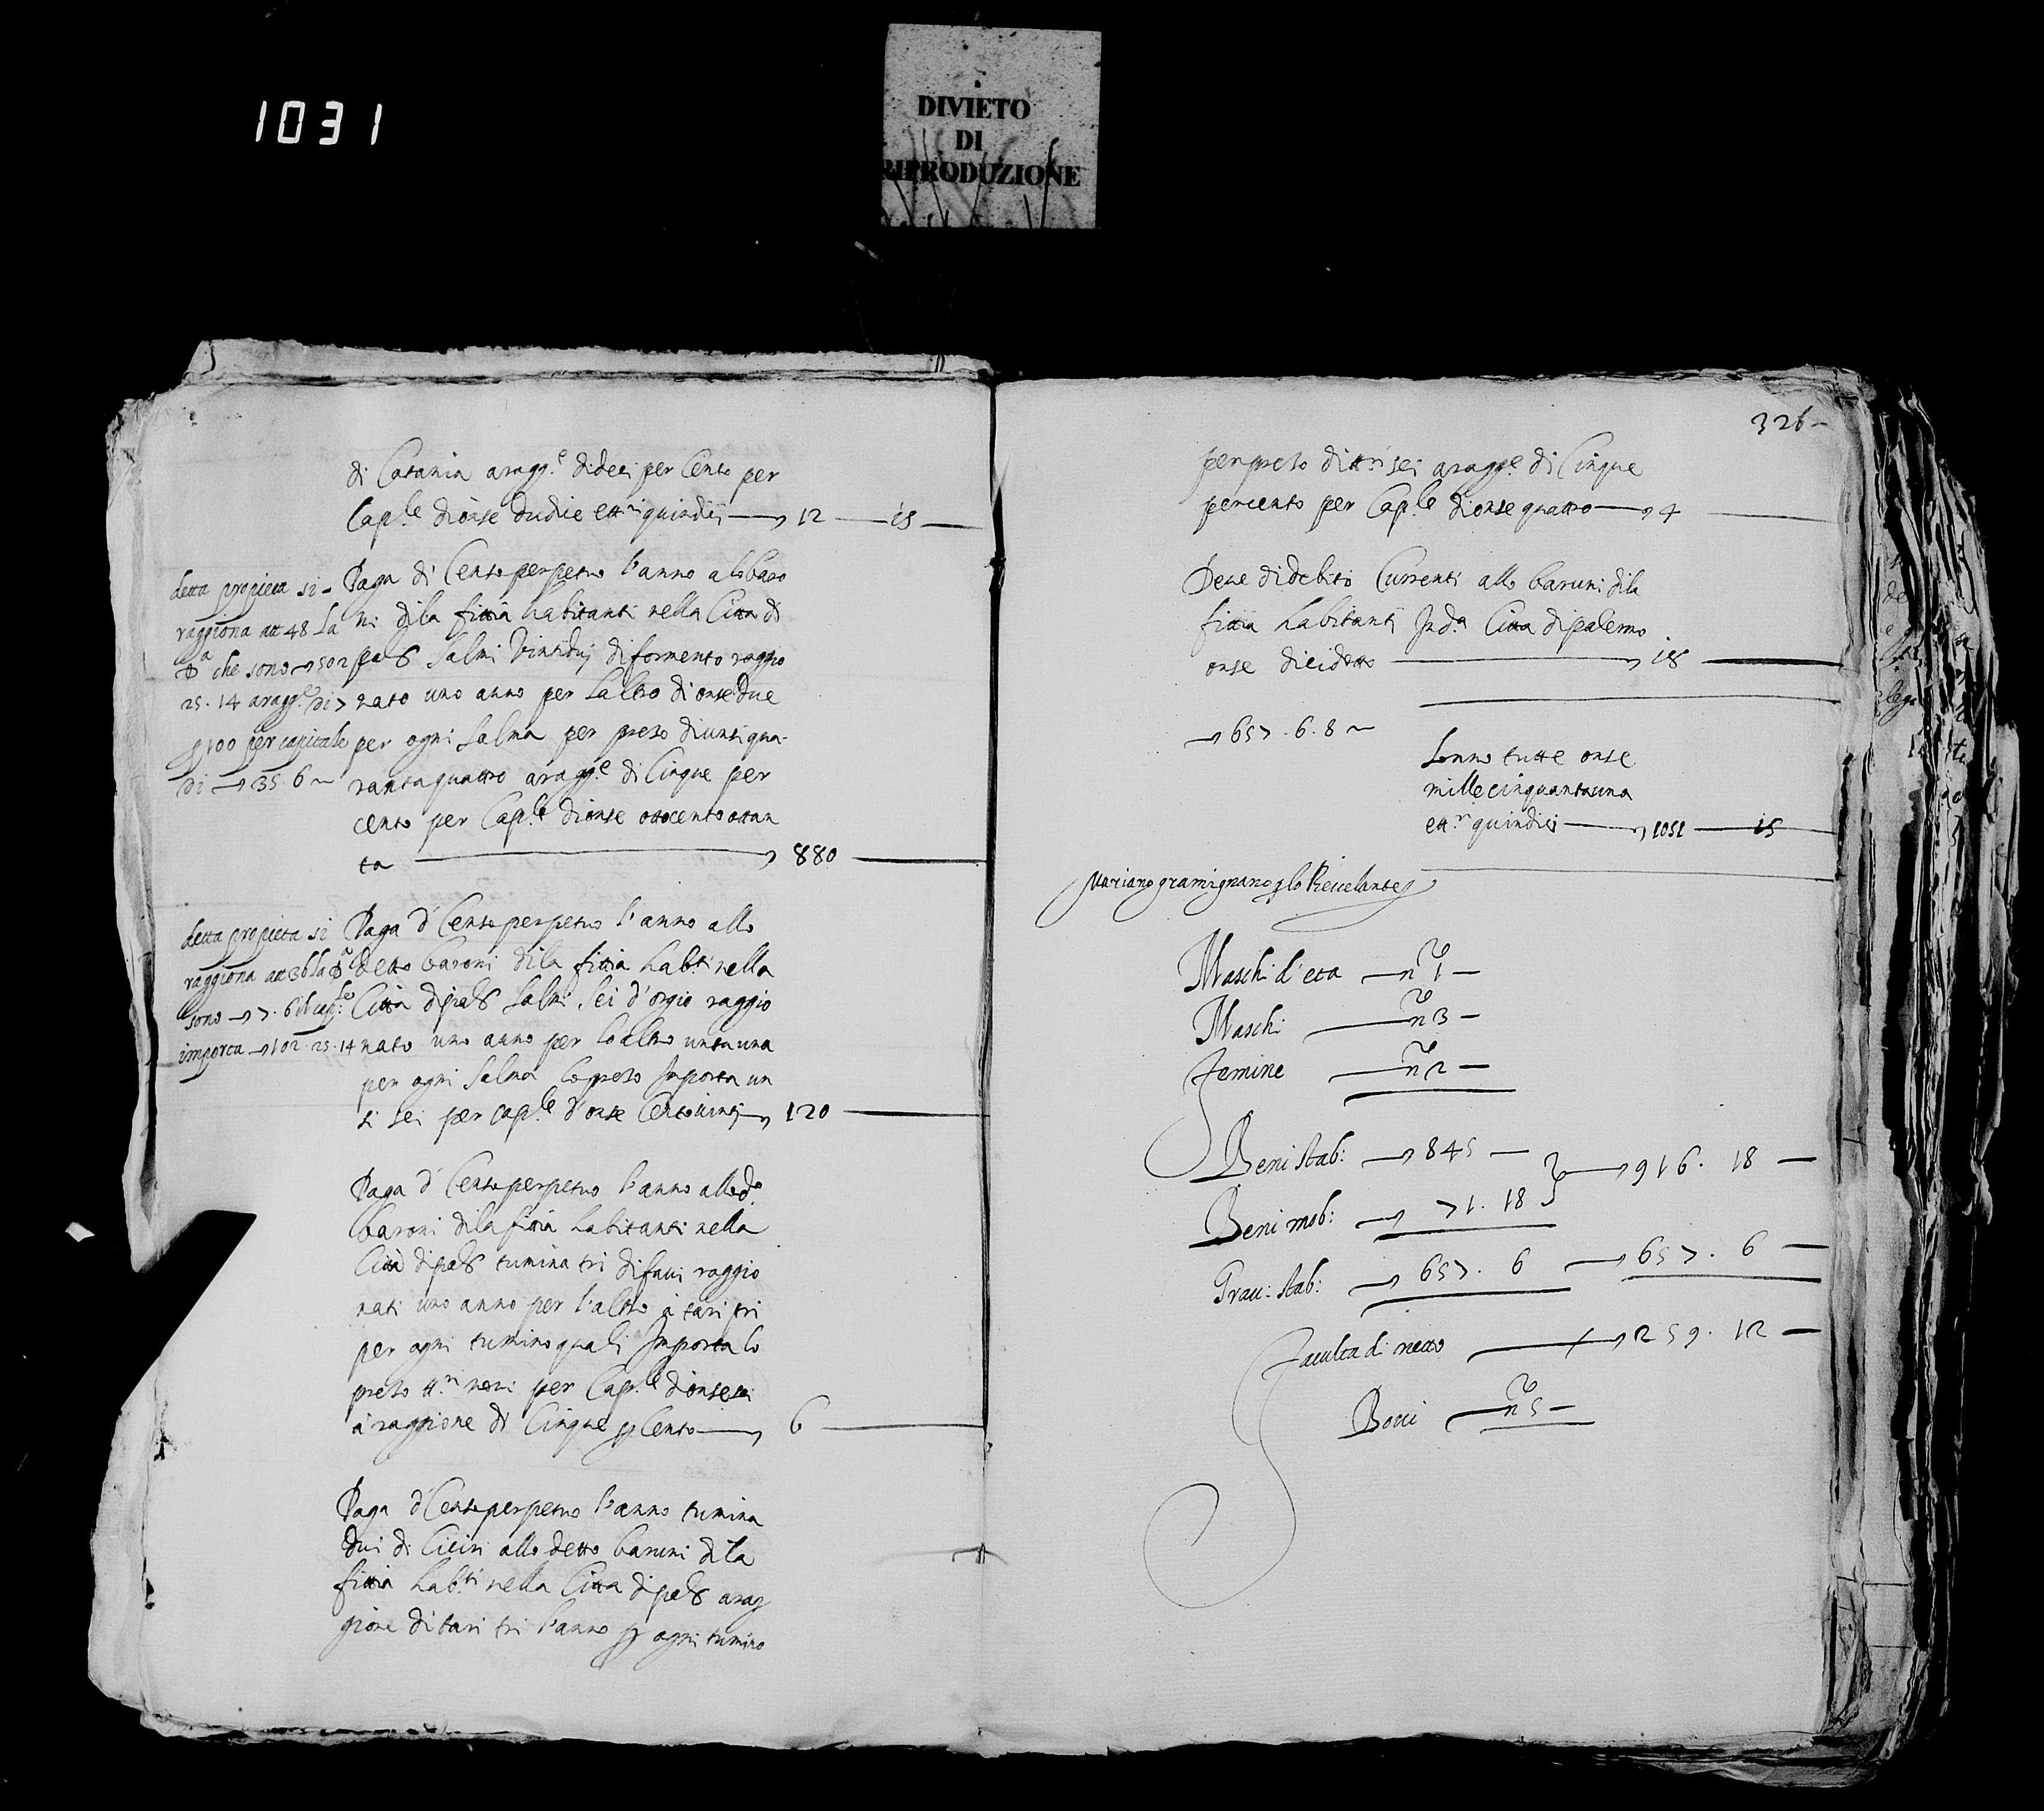 1031
DIVIETO
DI
RIPRODUZIONE
di Catania aragg.e dideci per Cento per
Cap.le dionse dudice ett.ri quindici 12 15
Paga di Censo perpetuo l'anno alo baro
ni dila fittia habitanti nella Citta di
pal.o salmi vintidui di formento raggio
nato uno anno per laltro di onse due
per ogni salma per prezo di unsi qua
rantaquattro aragg.e di Cinque per
cento per Cap.le di onse ottocento ottan
ta 880
detta propieta si
raggiona att 48 la
s.a che sono 502
25.14 aragg.e di 7
p 100 per capitale
di 35.6
Paga d'Censo perpetuo l'anno allo
detto baroni dila fittia hab.ti nella
Citta di pal.o salmi sei d'orgio raggio
nato uno anno per loaltro unsa una
per ogni salma lo prezo Importa un
si sei per cap.le d'onse Centovinti 120
detta propieta si
raggiona att 36 la s.e
sono 7.6 il cap.le
importa 102.25.14
Paga d'Censo perpetuo l'anno allo d.o
baroni dila fittia habitanti nella
Citta di pal.o tumina tri di favi raggio
nati uno anno per l'altro à tari tri
per ogni tumino quali Importa lo
prezo tt.ri novi per Cap.le d'onse sei
à raggione di Cinque p Cento 6
Paga d'Censo perpetuo l'anno tumina
dui di Ciciri allo detto baruni dila
fittia hab.ti nella Citta di pal.o arag
gione di tari tri l'anno p ogni tumino
326
per prezo di tt.ri sei aragg.e di Cinque
percento per Cap.le di onse quattro 4
Deve di debito Currenti allo baruni dila
fittia habitanti In d.a Citta di palermo
onse dicidotto 18
657.6.8
Sonno tutte onse
mille cinquantauna
ett.ri quindici 1051 15
Mariano gramignano p lo Revelante
Maschi d'eta n.o 1
Maschi n.o 3
Femine n.o 2
Beni stab: 845
916. 18
Beni mob: 71. 18
Grav: stab: 657. 6 657. 6
Faculta di netto 259. 12
Bovi n.o 5